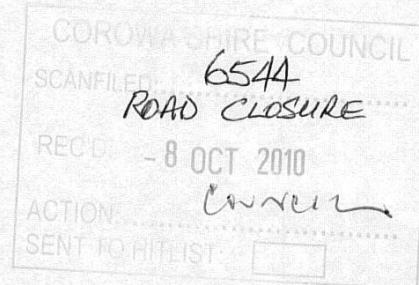 COROWA SHIRE COUNCIL
SCANFILED: 6544
ROAD CLOSURE
REC'D: - 8 OCT 2010
ACTION: COUNCIL
SENT TO HITLIST: